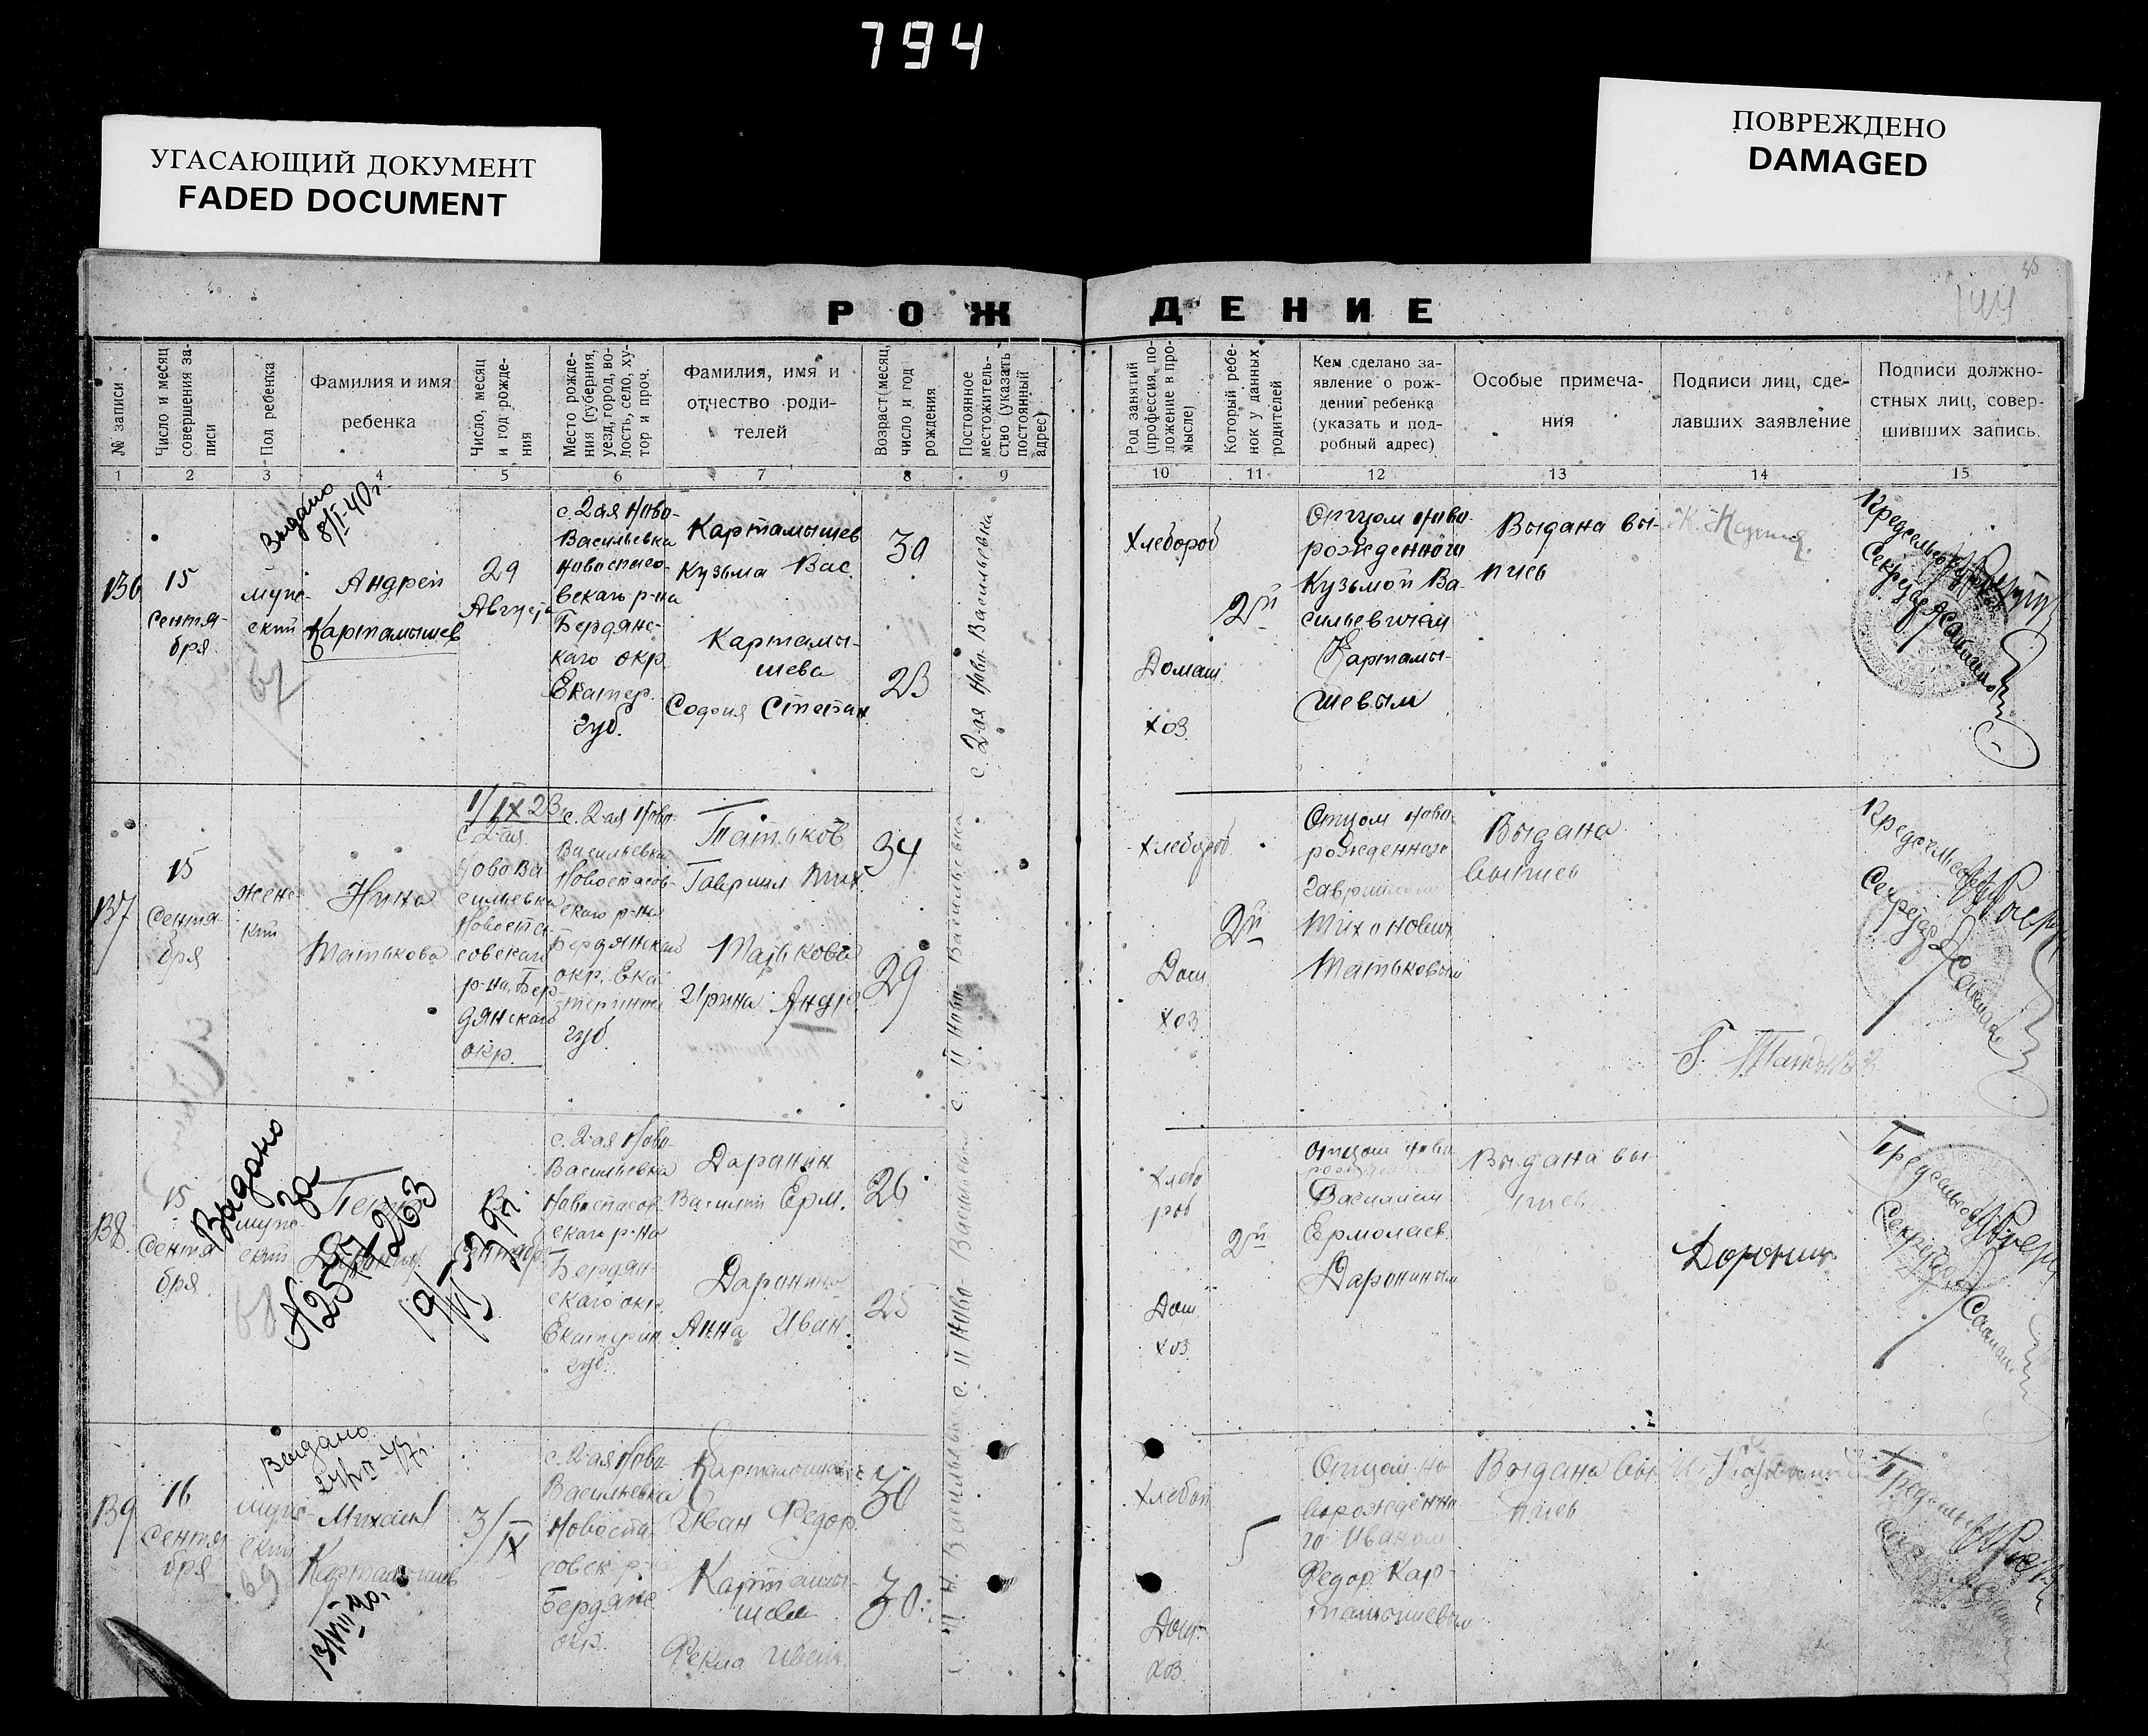 794
УГАСАЮЩИЙ ДОКУМЕНТ
FADED DOCUMENT
ПОВРЕЖДЕНО
DAMAGED
РОЖДЕНИЕ
№ записи
Число и месяц
совершения за-
писи
Пол ребенка
Фамилия и имя
ребенка
Число, месяц
и год рожде-
ния
Место рожде-
ния (губерния,
уезд, город, во-
лость, село, ху-
тор и проч.
Фамилия, имя и
отчество роди-
телей
Возраст (месяц,
число и год
рождения
Постоянное
местожитель-
ство (указать
постоянный
адрес)
Род занятий
(профессия, по-
ложение в про-
мысле)
Который ребе-
нок у данных
родителей
Кем сделано за-
явление о рож-
дении ребенка
(указать и под-
робный адрес)
Особые примеча-
ния
Подписи лиц, сде-
лавших заявление
Подписи должно-
стных лиц, совер-
шивших запись.
1 2 3 4 5 6 7 8 9 10 11 12 13 14 15
136
15
сентя-
бря
Выдано
8/I-40г.
муж-
ский
67
Андрей
Картамышев
29
Августа
с. 2ая Ново-
Васильевка
Новоспасо-
вского р-на
Бердянс-
каго окр.
Екатер.
губ.
Картамышев
Кузьма Вас.
Картамы-
шева
София Степан.
30
23
с. 2-ая Ново-Васильевка
Хлебороб
Домаш.
хоз.
2й
Отцом ново-
рожденного
Кузьмой Ва-
сильевичем
Картамы-
шевым
Выдана вы-
пись
Председ
Секретар
137
15
Сентя-
бря
женс-
кий
Нина
Татькова
1/IX 23
с. 2-ая
Ново Ва-
сильевка
Новоспа-
совского
р-на, Бер-
дянского
окр.
с. 2-ая Ново-
Васильевка
Новоспасов-
ского р-на
Бердянского
окр. Ека-
губ.
Татьков
Гавриил Тих.
Татькова
Ирина Андр.
34
29
с. II Ново-Васильевка
Хлебороб
Дом.
хоз.
2й
Отцом ново-
рожденного
Гавриилом
Тихонович
Татьковым
Выдана
выпись
Г. Татьков
Секретар
138
15
Сентя-
бря
муж-
ский
68
Выдано
за
№ 257-263
19/VI-39г.
сентябр
с. 2-ая Ново-
Васильевка
Новоспасов-
ского р-на
Бердян-
скаго окр.
Екатерин.
губ.
Даронин
Василий Ерм.
Даронина
Анна Иван.
26
25
с. II Ново-Васильевка
Хлебо
роб
Дом.
хоз.
2й
Отцом ново-
Василием
Ермолаев.
Дарониным
Выдана вы-
пись
Доронин
139
16
Сентя
бря
Выдано
муж-
ский
69
Михаил
Картамышев
13/VIII 40.
3/IX
с. 2-ая Ново-
Васильевка
Новоспа-
совск. р-на
Бердянс
окр.
Картамышев
Иван Федор.
Картамы-
шева
Фекла Иван.
30
30
Хлебоп
Дом.
хоз.
5
Отцом но-
ворожденно-
го Иваном
Федор. Кар-
тамышевым
Выдана вы-
пись